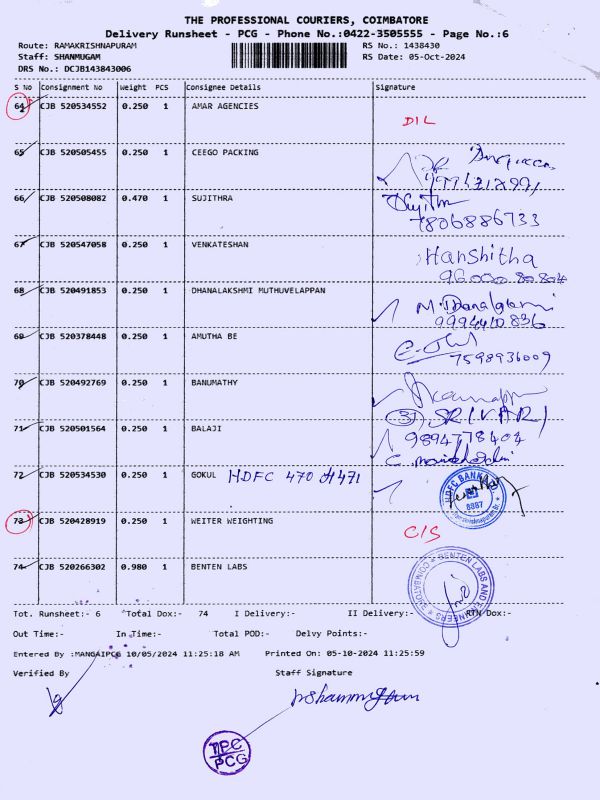 THE PROFESSIONAL COURIERS, COIMBATORE
Delivery Runsheet - PCG - Phone No.:0422-3505555 - Page No.:6
Route: RAMAKRISHNAPURAM RS No.: 1438430
Staff: SHANMUGAM RS Date: 05-Oct-2024
DRS No.: DCJB143843006
S No Consignment No Weight PCS Consignee Details Signature
64 CJB 520534552 0.250 1 AMAR AGENCIES
DIL
65 CJB 520505455 0.250 1 CEEGO PACKING
66 CJB 520508082 0.470 1 SUJITHRA
7806886733
67 CJB 520547058 0.250 1 VENKATESHAN
Hanshitha
96000 80804
68 CJB 520491853 0.250 1 DHANALAKSHMI MUTHUVELAPPAN
9994410836
69 CJB 520378448 0.250 1 AMUTHA BE
7598936009
70 CJB 520492769 0.250 1 BANUMATHY
31 SRIVARI
71 CJB 520501564 0.250 1 BALAJI
9894778404
72 CJB 520534530 0.250 1 GOKUL HDFC 470 471
HDFC BANK
8887
73 CJB 520428919 0.250 1 WEITER WEIGHTING
C/S
74 CJB 520266302 0.980 1 BENTEN LABS
BENTEN LABS AND ENGINEERS COIMBATORE
Tot. Runsheet:- 6 Total Dox:- 74 I Delivery:- II Delivery:- RTN Dox:-
Out Time:- In Time:- Total POD:- Delvy Points:-
Entered By :MANGAIPCG 10/05/2024 11:25:18 AM Printed On: 05-10-2024 11:25:59
Verified By Staff Signature
TPC
PCG